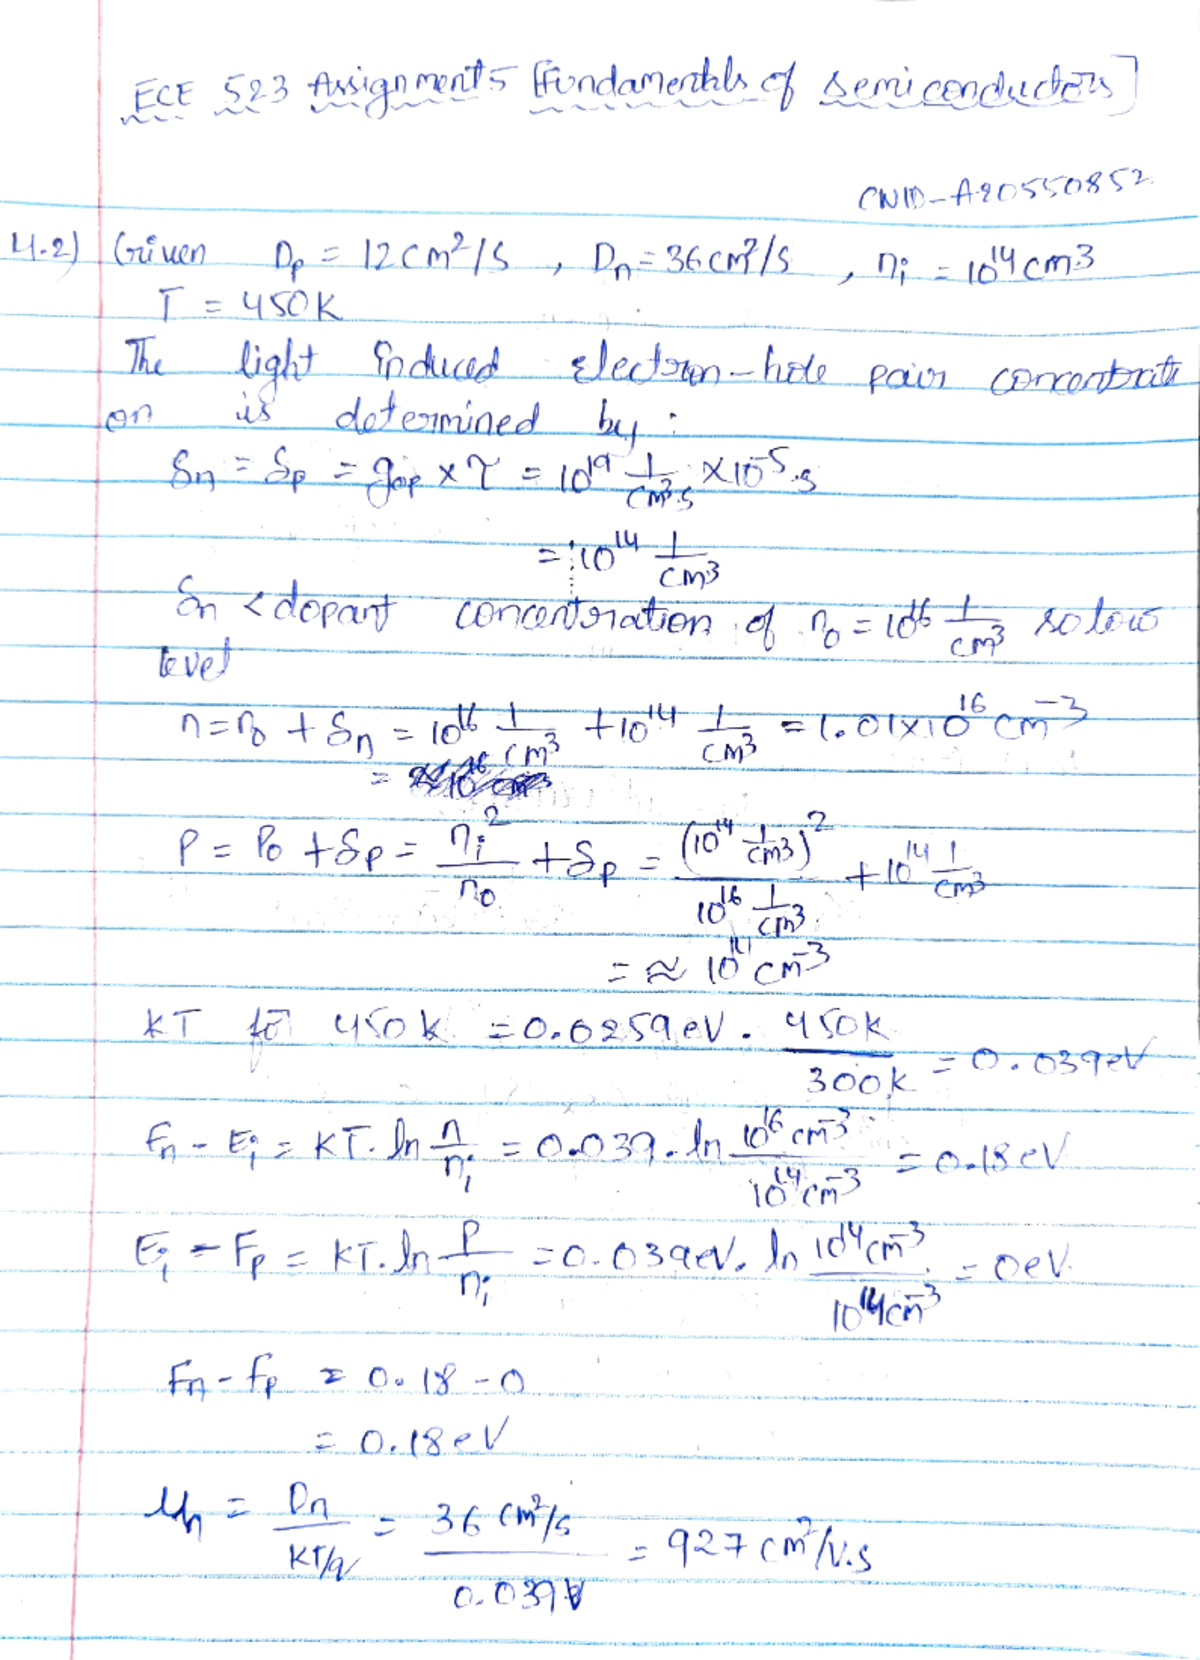 ECE 523 Assignment 5 [Fundamentals of semiconductors]
CWID-A20550852
4.2) Given Dp = 12 cm²/s , Dn = 36 cm²/s , ni = 10¹⁴ cm3
T = 450K
The light induced Electron-hole pair concentrati
on is determined by :
δn = δp = gop × τ = 10¹⁹ 1/cm³.s × 10⁻⁵.s
= 10¹⁴ 1/cm³
δn < dopant concentration of n₀ = 10¹⁶ 1/cm³ so low
level
n = n₀ + δn = 10¹⁶ 1/cm³ + 10¹⁴ 1/cm³ = 1.01×10¹⁶ cm⁻³
=
P = P₀ + δp = ni²/n₀ + δp = (10¹⁴ 1/cm³)²/10¹⁶ 1/cm³ + 10¹⁴ 1/cm³
= ≈ 10¹⁴ cm⁻³
KT for 450k = 0.0259eV . 450K/300k = 0.039eV
Fn - Ei = KT. ln n/ni = 0.039. ln 10¹⁶ cm⁻³/10¹⁴ cm⁻³ = 0.18 eV
Ei - Fp = KT. ln P/ni = 0.039eV. ln 10¹⁴ cm⁻³/10¹⁴ cm⁻³ = 0eV.
Fn - Fp = 0.18 - 0
= 0.18eV
μn = Dn/KT/q = 36 cm²/s/0.039V = 927 cm²/V.s